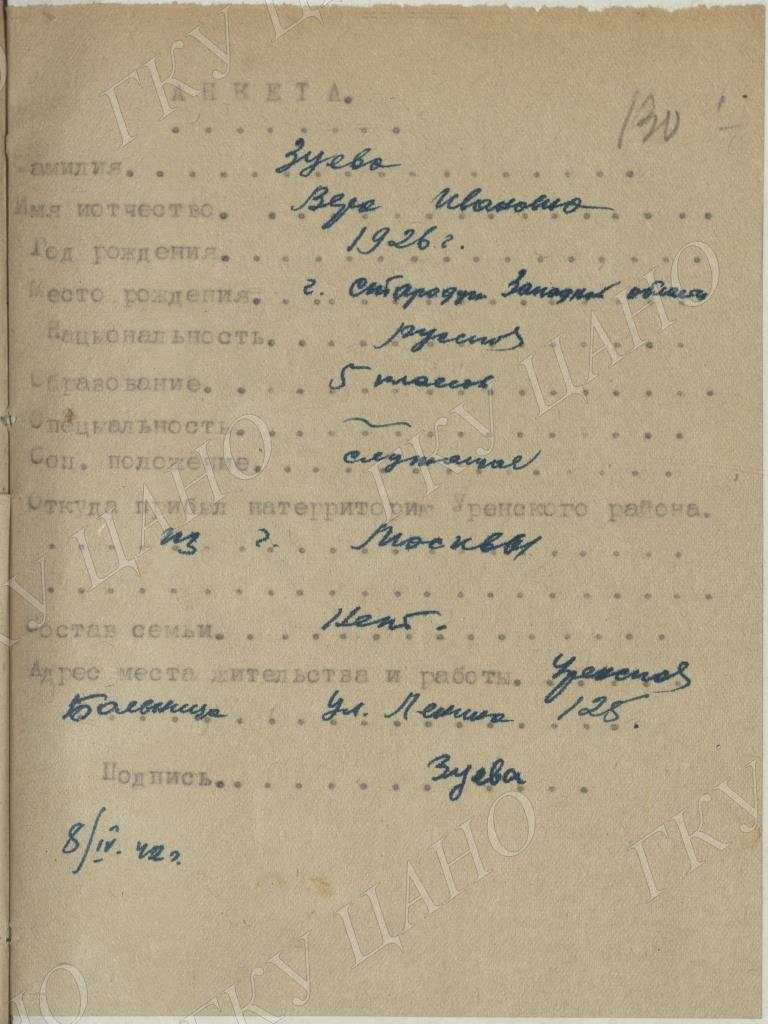 АНКЕТА.
130
Фамилия. Зуева
Имя иотчество. Вера Ивановна
Год рождения. 1926 г.
Место рождения. г. Стародуб Западной области
Национальность. русская
Образование. 5 классов
Специальность. —
Соц. положение. служащая
Откуда прибыл натерриторию Уренского района.
из г. Москвы
Состав семьи.
Адрес места жительства и работы. Уренская
больница ул. Ленина 125.
Подпись. Зуева
8/IV. 42 г.
ГКУ ЦАНО